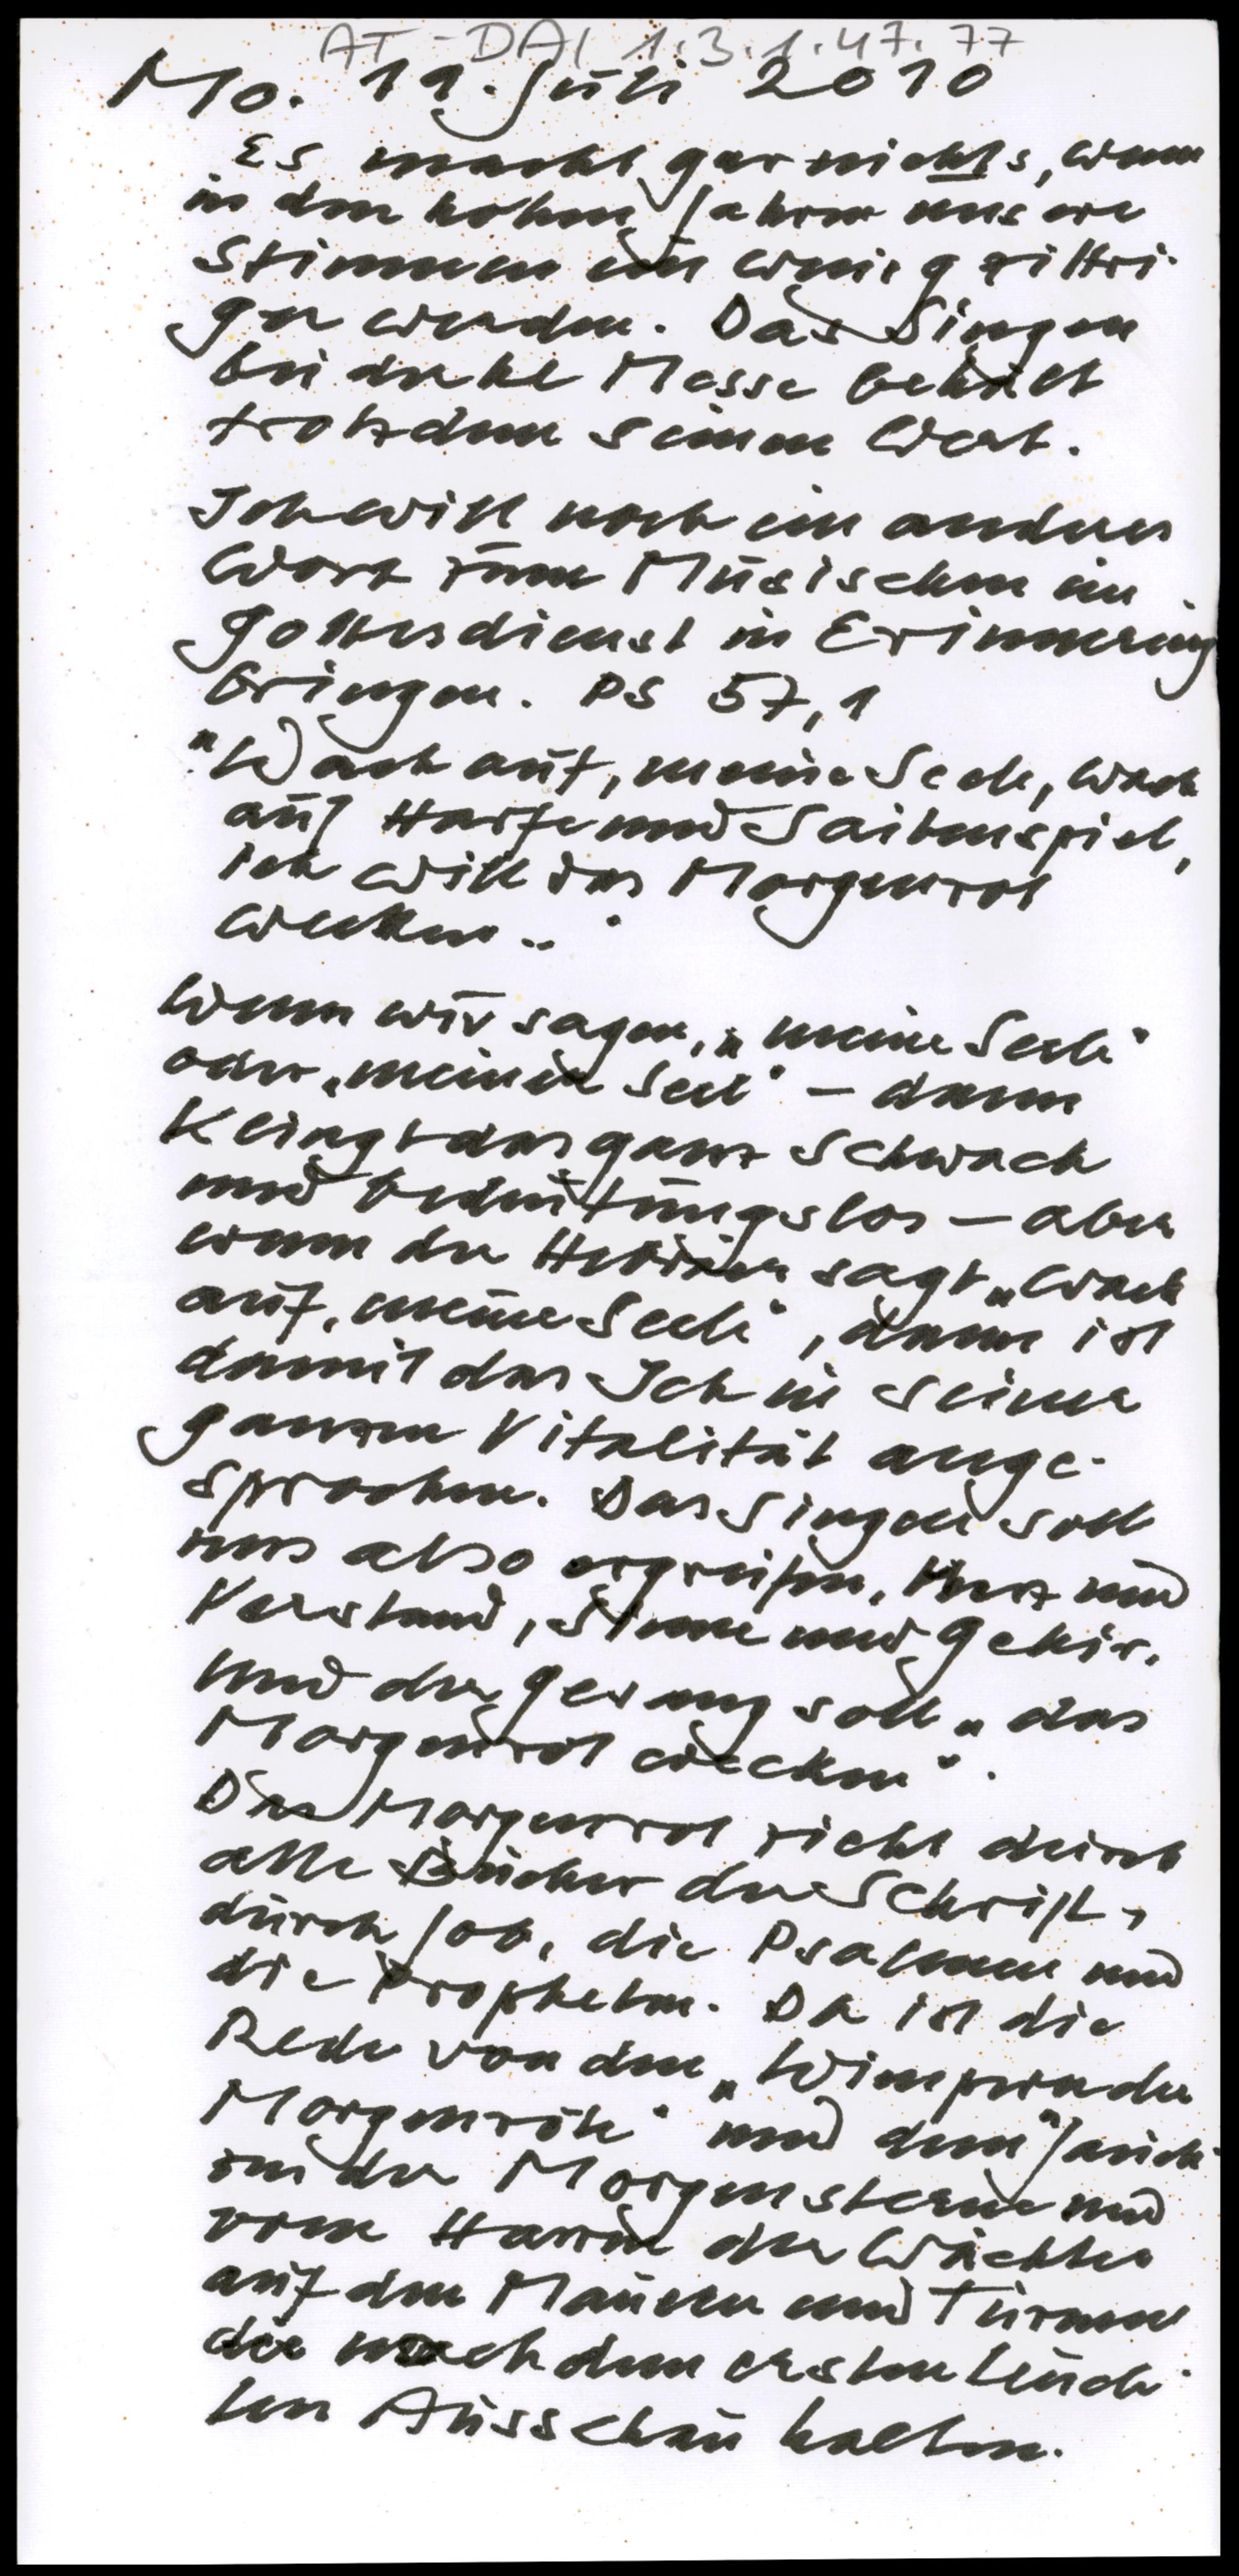 AT-DAI 1.3.1.47.77
Mo. 19. Juli 2010
Es macht gar nichts, wenn
in den hohen Jahren unsere
Stimmen ein wenig zittri-
ger werden. Das Singen
bei der hl Messe behält
trotzdem seinen Wert.
Ich will noch ein anderes
Wort zum Musischen im
Gottesdienst in Erinnerung
bringen. PS 57,1
"Wach auf, meine Seele, wach
auf Harfe und Saitenspiel,
ich will das Morgenrot
wecken.."
Wenn wir sagen, "meine Seele"
oder "meiner Seel" – dann
klingt das ganz schwach
und bedeutungslos – aber
wenn der Hebräer sagt "Wach
auf, meine Seele", dann ist
damit das Ich in seiner
ganzen Vitalität ange-
sprochen. Das Singen soll
uns also ergreifen, Herz und
Verstand, Sinne und Gehirn.
Und der Gesang soll "das
Morgenrot wecken".
Das Morgenrot zieht durch
alle Bücher der Schrift,
durch Job, die Psalmen und
die Propheten. Da ist die
Rede von den "Wimpern der
Morgenröte" und dem "Jauch-
zen der Morgensterne und
vom Harren der Wächter
auf den Mauern und Türmen
die nach dem ersten Leuch-
ten Ausschau halten.